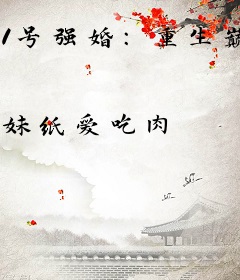 1号强婚：重生巅
妹纸爱吃肉